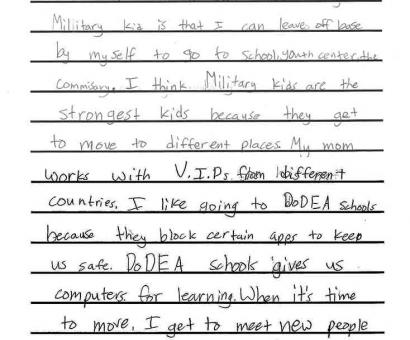 Military kid is that I can leave off base
by my self to go to school, youth center, the
commisary. I think Military kids are the
strongest kids because they get
to move to different places. My mom
works with V.I.Ps. from different
countries. I like going to DoDEA schools
because they block certain apps to keep
us safe. DoDEA schools gives us
computers for learning. When it's time
to move, I get to meet new people